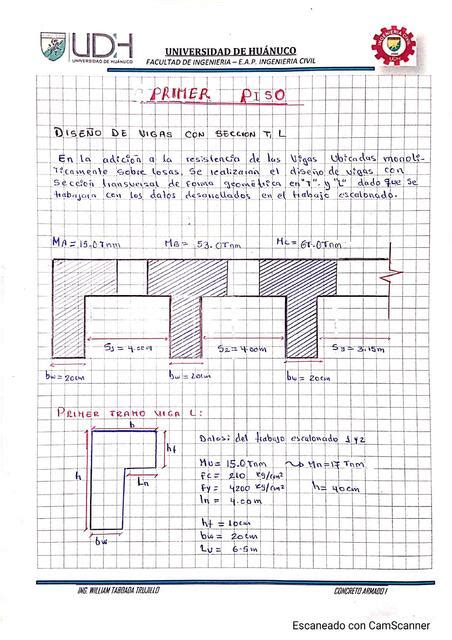 UDH
UNIVERSIDAD DE HUÁNUCO
UNIVERSIDAD DE HUÁNUCO
FACULTAD DE INGENIERIA – E.A.P. INGENIERIA CIVIL
PRIMER PISO
DISEÑO DE VIGAS CON SECCION T, L
En la adición a la resistencia de las Vigas Ubicadas monolí-
ticamente sobre losas, se realizaran el diseño de vigas con
sección transversal de forma geométrica en "T" y "L" dado que se
trabajara con los datos desarrollados en el trabajo escalonado.
MA = 15.0Tnm MB = 53.0Tnm MC = 61.0Tnm
S1 = 4.00m S2 = 4.00m S3 = 3.15m
bw = 20cm bw = 20cm bw = 20cm
PRIMER TRAMO VIGA L:
b
Datos: del trabajo escalonado 1 y 2
hf
h
Ln
bw
Mu = 15.0Tnm Mn = 17 Tnm
f'c = 210 kg/cm²
fy = 4200 kg/cm² h = 40cm
ln = 4.00m
hf = 10cm
bw = 20cm
Lv = 6.5m
ING. WILLIAM TABOADA TRUJILLO CONCRETO ARMADO I
Escaneado con CamScanner